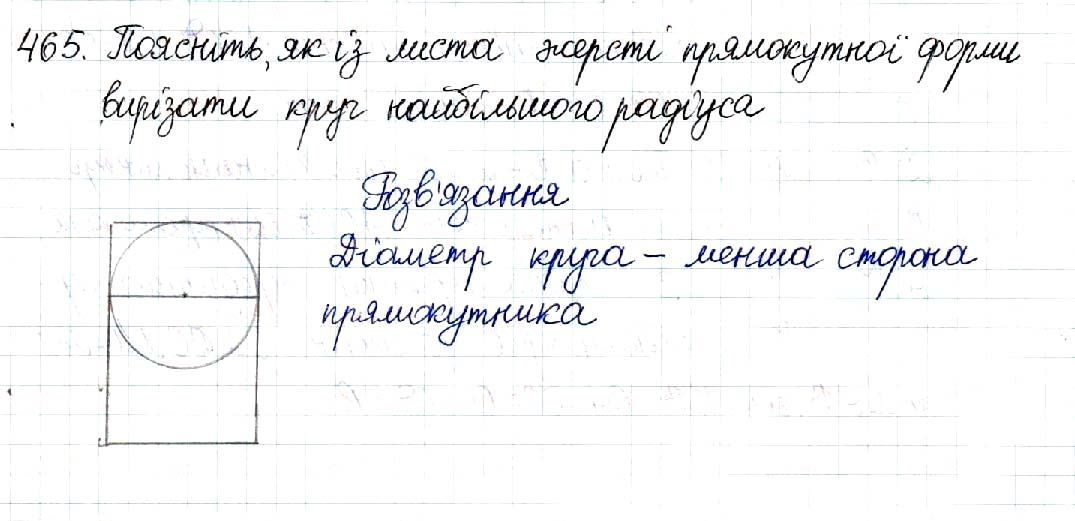 465. Поясніть, як із листа жерсті прямокутної форми
вирізати круг найбільшого радіуса
Розв'язання
Діаметр круга – менша сторона
прямокутника